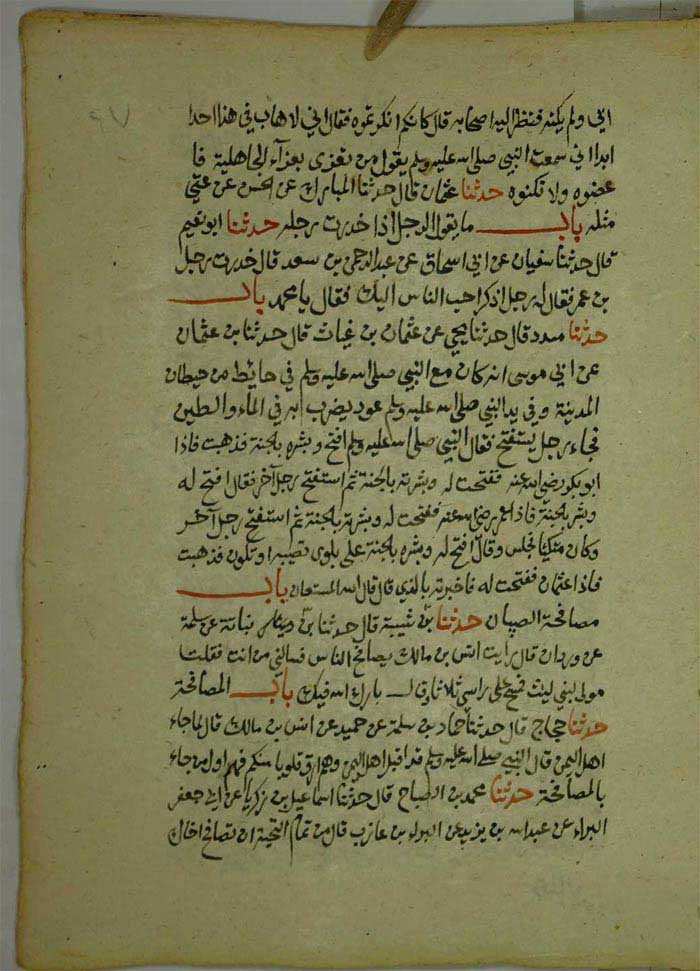 ابي ولم يكنه فنظر اليه اصحابه قال كانكم انكرتموه فقال اني لا هاب في هذا احدا
ابدا اني سمعت النبي صلى الله عليه وسلم يقول من تعزى بعزآء الجاهلية فا
عضوه ولا تكنوه حدثنا عثمان قال حدثنا المبارك عن الحسن عن عتي
مثله باب ما يقول الرجل اذا خدرت رجله حدثنا ابو نعيم
قال حدثنا سفيان عن ابي اسحاق عن عبد الرحمن بن سعد قال خدرت رجل
بن عمر فقال له رجل اذكر احب الناس اليك فقال يا محمد باب
حدثنا مسدد قال حدثنا يحيى عن عثمان بن غياث قال حدثنا بن عثمان
عن ابي موسى انه كان مع النبي صلى الله عليه وسلم في حائط من حيطان
المدينة وفي يد النبي صلى الله عليه وسلم عود يضرب به في الماء والطين
فجاء رجل يستفتح فقال النبي صلى الله عليه وسلم افتح وبشره بالجنة فذهبت فاذا
ابو بكر رضي الله عنه ففتحت له وبشرته بالجنة ثم استفتح رجل آخر فقال افتح له
وبشره بالجنة فاذا عمر رضي الله عنه ففتحت له وبشرته بالجنة ثم استفتح رجل آخر
وكان متكيا فجلس وقال افتح له وبشره بالجنة على بلوى تصيبه او تكون فذهبت
فاذا عثمان ففتحت له فاخبرته بالذي قال قال الله المستعان باب
مصافحة الصبيان حدثنا بن شيبة قال حدثنا بن نباتة عن سلمة
عن وردان قال رايت انس بن مالك يصافح الناس فسالني من انت فقلت
مولى لبني ليث فمسح على راسي ثلاثا وقال بارك الله فيك باب المصافحة
حدثنا حجاج قال حدثنا حماد بن سلمة عن حميد عن انس بن مالك قال لما جاء
اهل اليمن قال النبي صلى الله عليه وسلم قد اقبل اهل اليمن وهم ارق قلوبا منكم فهم اول من جاء
بالمصافحة حدثنا محمد بن الصباح قال حدثنا اسماعيل بن زكريا عن ابي جعفر
البراء عن عبد الله بن يزيد عن البراء بن عازب قال من تمام التحية ان تصافح اخاك